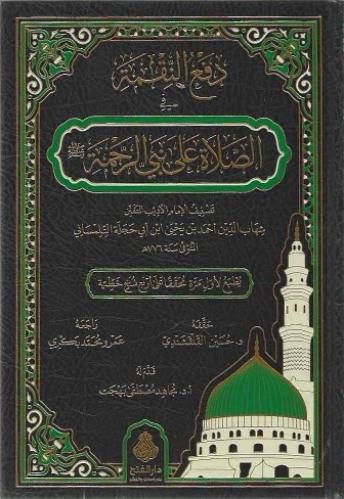 دفع النقمة
في
الصلاة على نبي الرحمة ﷺ
تصنيف الإمام الأديب المتفنن
شهاب الدين أحمد بن يحيى ابن أبي حجلة التلمساني
المتوفى سنة ٧٧٦هـ
يطبع لأول مرة محققا على أربع نسخ خطية
حققه
د. حسين القلقشندي
راجعه
عمرو محمد بكري
قدم له
أ.د. مجاهد مصطفى بهجت
دار الفتح
للدراسات والنشر